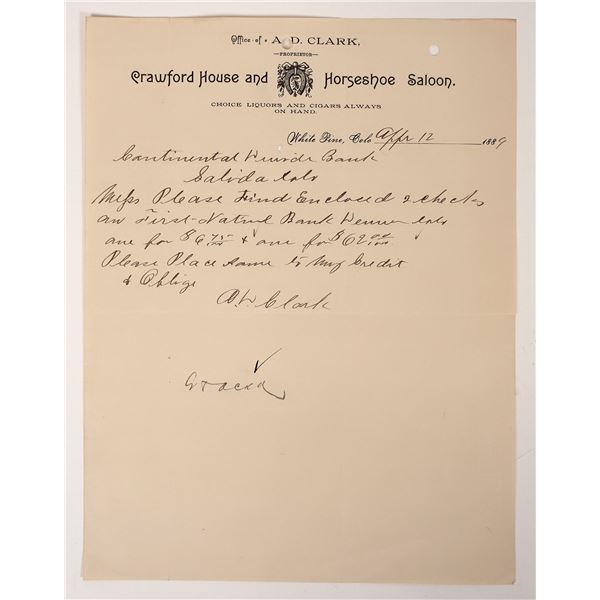 Office of A. D. CLARK,
PROPRIETOR
Crawford House and Horseshoe Saloon.
CHOICE LIQUORS AND CIGARS ALWAYS
ON HAND.
White Pine, Colo Appr 12 1889
Continental Bank
Salida Colo
Mess Please Find Enclosed 2 checks
on First Natnel Bank Denver Colo
one for $6 75/100 & one for $62 00/100
Please Place Same to My Credit
& Oblige
A. D. Clark